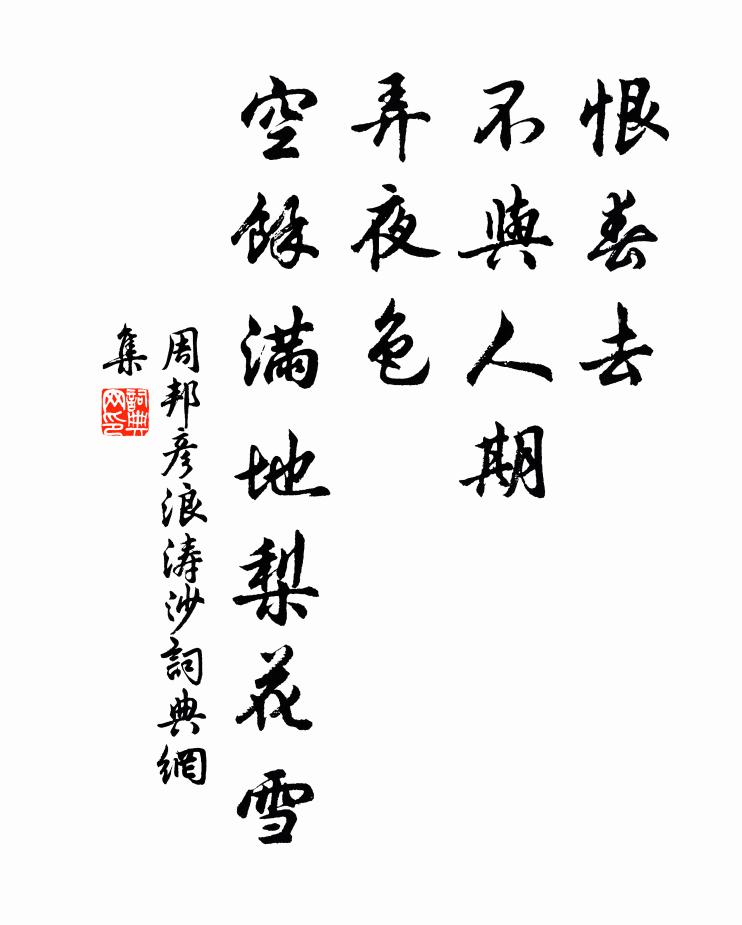 恨春去
不與人期
弄夜色
空餘滿地梨花雪
周邦彦浪濤沙詞典網
集
詞典
网印